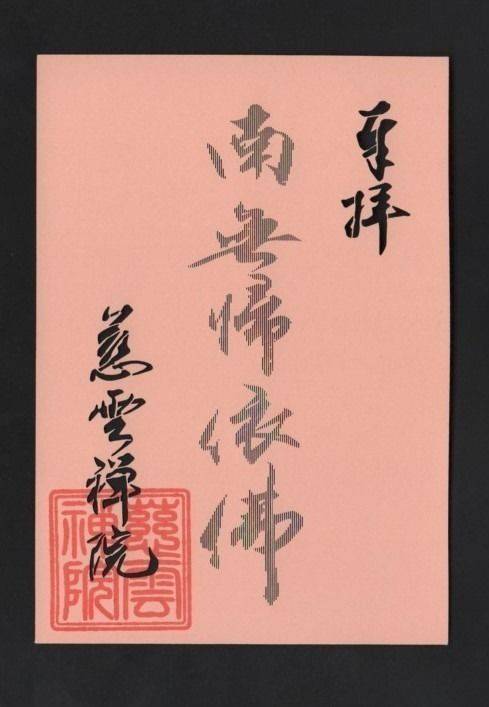 奉拝
南無帰依佛
慈雲禅院
慈雲
禅院